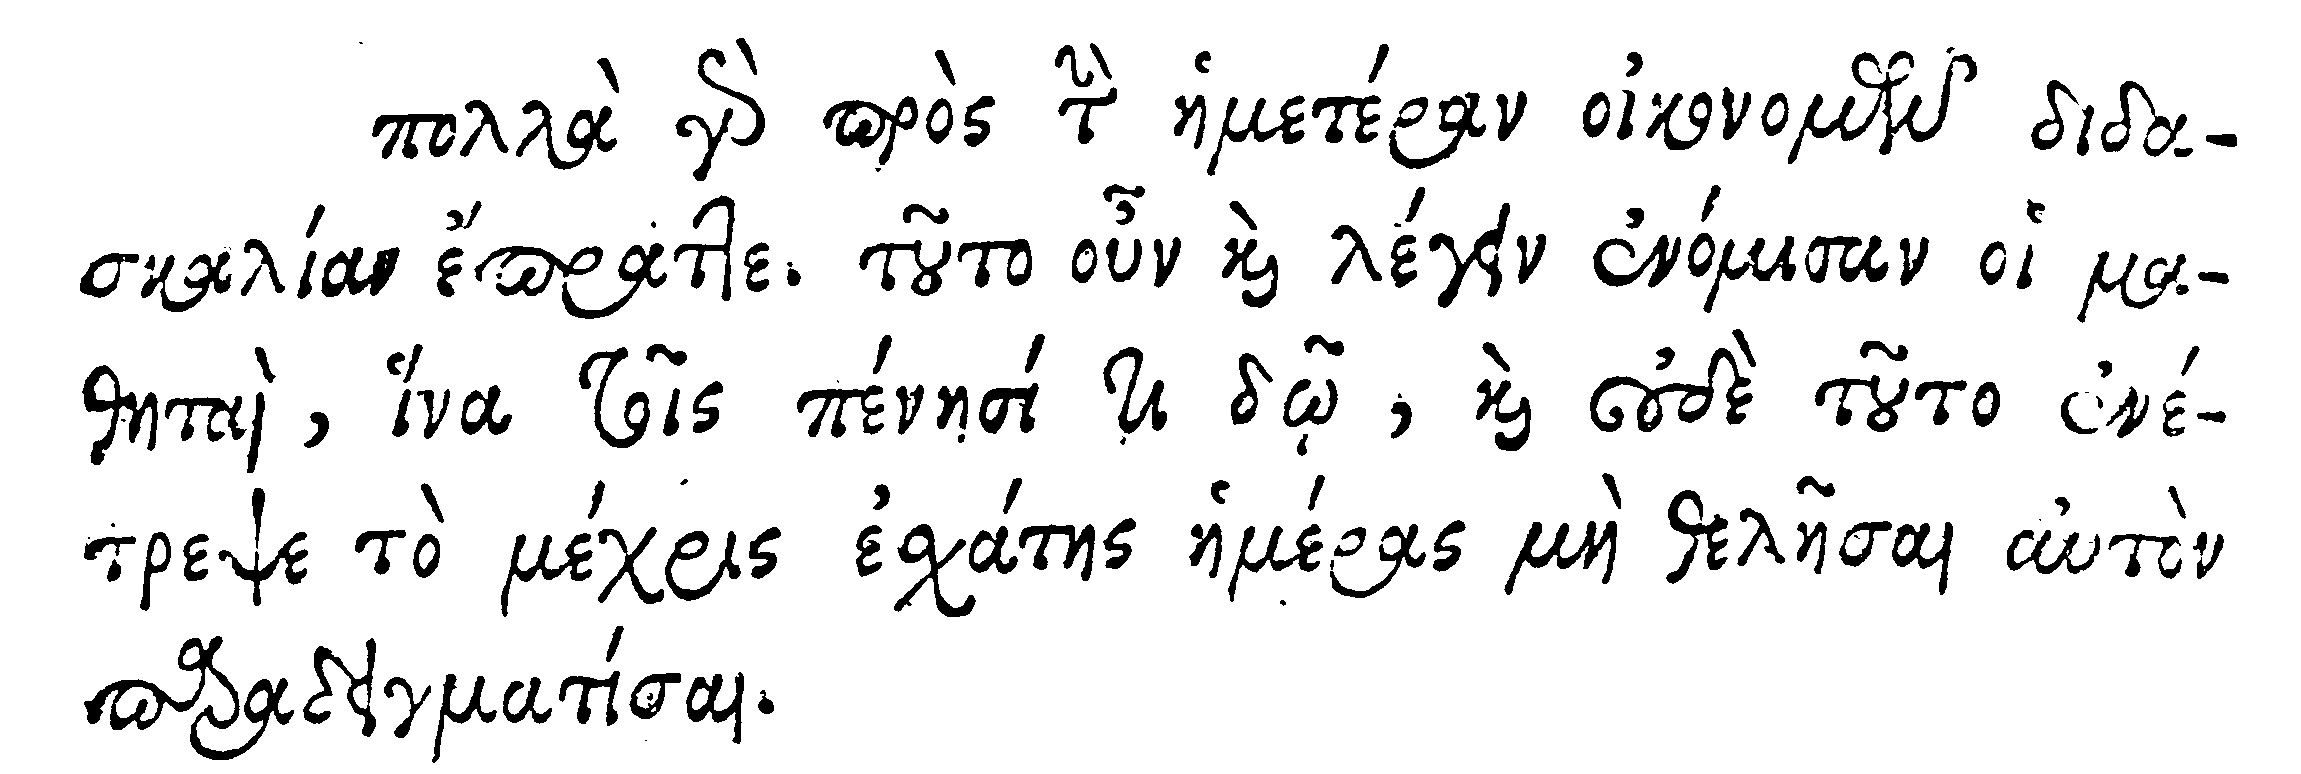 πολλὰ γὰρ πρὸς τὴν ἡμετέραν οἰκονομῶν διδα-
σκαλίαν ἔπραττε. τοῦτο οὖν καὶ λέγειν ἐνόμισαν οἱ μα-
θηταὶ, ἵνα τοῖς πένησί τι δῷ, καὶ οὐδὲ τοῦτο ἐνέ-
τρεψε τὸ μέχρις ἐσχάτης ἡμέρας μὴ θελῆσαι αὐτὸν
παραδειγματίσαι.